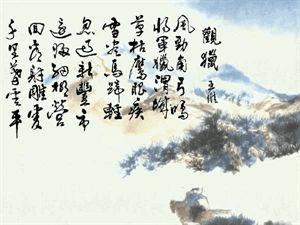 觀獵 王維
風勁角弓鳴
將軍獵渭城
草枯鷹眼疾
雪盡馬蹄輕
忽過新豐市
還歸細柳營
回看射雕處
千里暮雲平